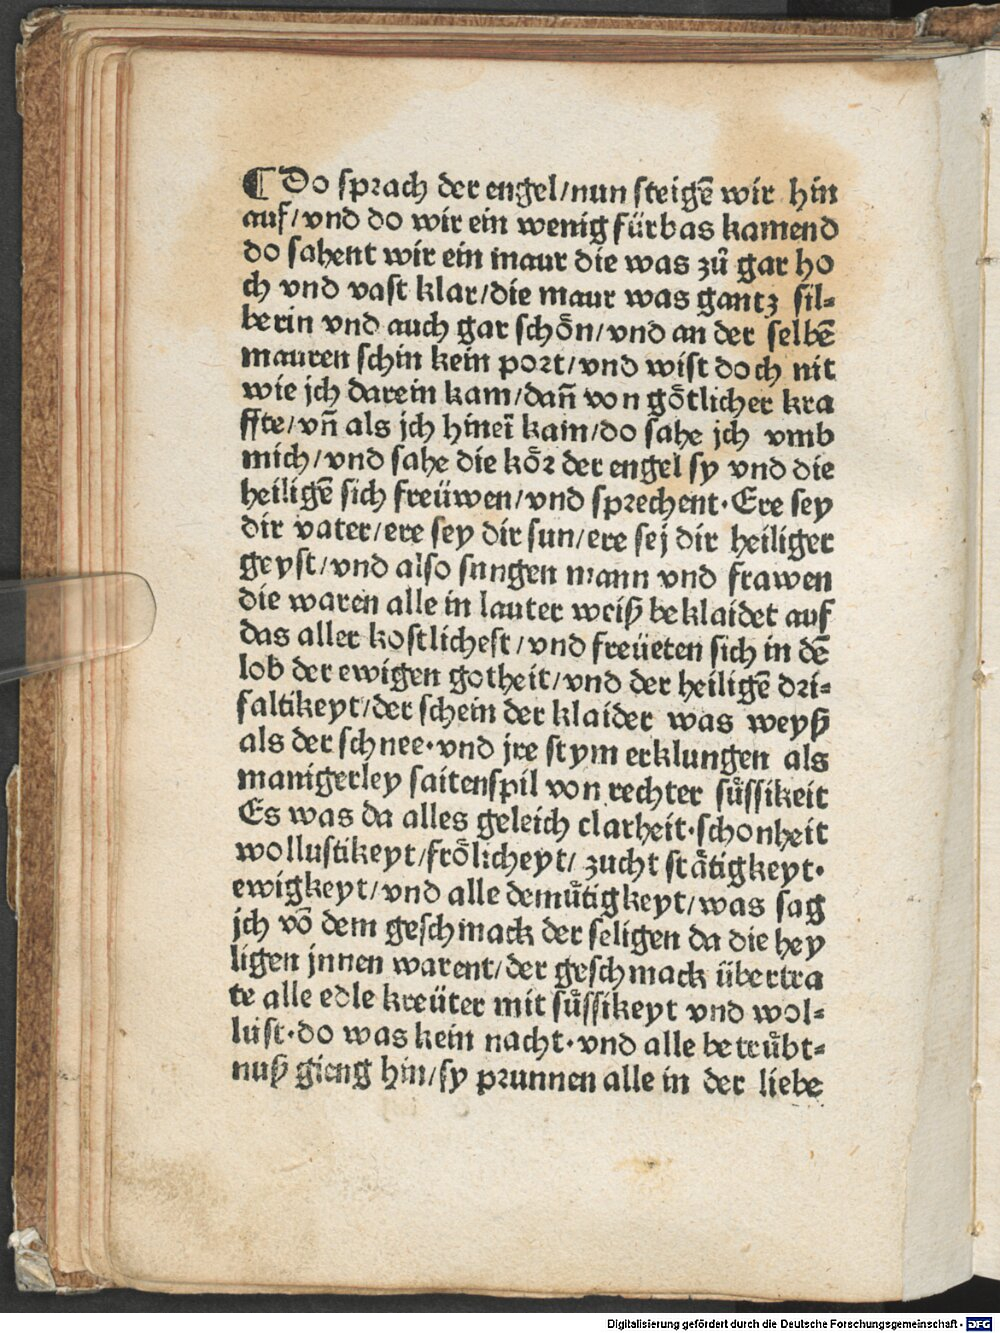 ¶ Do sprach der engel/nun steigē wir hin
auf/vnd do wir ein wenig fürbas kamend
do sahent wir ein maur die was zů gar ho
ch vnd vast klar/die maur was gantz sil⸗
berin vnd auch gar schȫn/vnd an der selbē
mauren schin kein port/vnd wist doch nit
wie jch darein kam/dañ von gȫtlicher kra
ffte/vñ als jch hineī kam/do sahe jch vmb
mich/vnd sahe die kȫr der engel sy vnd die
heiligē sich freüwen/vnd sprechent·Ere sey
dir vater/ere sey dir sun/ere sej dir heiliger
geyst/vnd also sungen mann vnd frawen
die waren alle in lauter weiß beklaidet auf
das aller kostlichest/vnd freüeten sich in dē
lob der ewigen gotheit/vnd der heiligē dri⸗
faltikeyt/der schein der klaider was weyß
als der schnee·vnd jre stym erklungen als
manigerley saitenspil von rechter süssikeit
Es was da alles geleich clarheit·schonheit
wollustikeyt/frölicheyt/ zucht stätigkeyt·
ewigkeyt/vnd alle demütigkeyt/was sag
jch vō dem geschmack der seligen da die hey
ligen jnnen warent/der geschmack übertra
te alle edle kreüter mit süssikeyt vnd wol⸗
lust·do was kein nacht·vnd alle betrübt⸗
nuß gieng hin/sy prunnen alle in der liebe
Digitalisierung gefördert durch die Deutsche Forschungsgemeinschaft - DFG